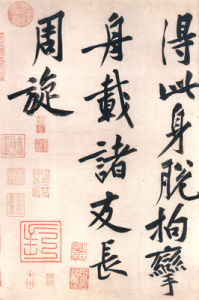 得此身脫拘攣
舟載諸友長
周旋